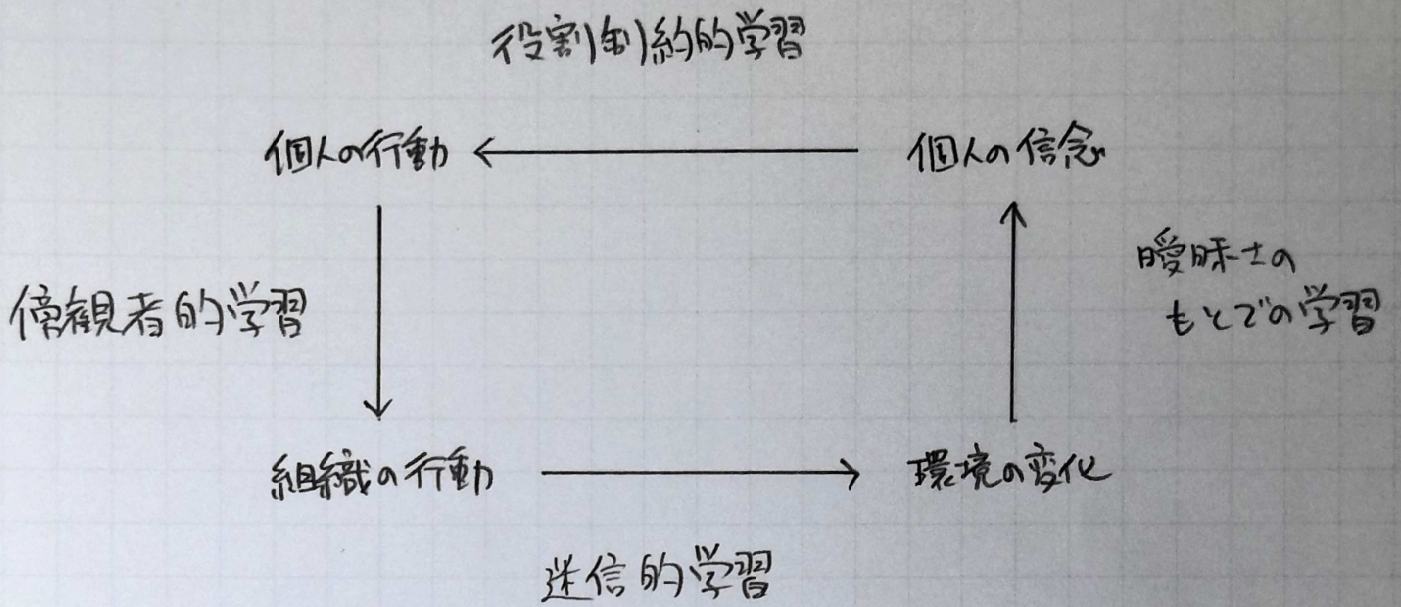 役割制約的学習
個人の行動
個人の信念
傍観者的学習
曖昧さの
もとでの学習
組織の行動
環境の変化
迷信的学習